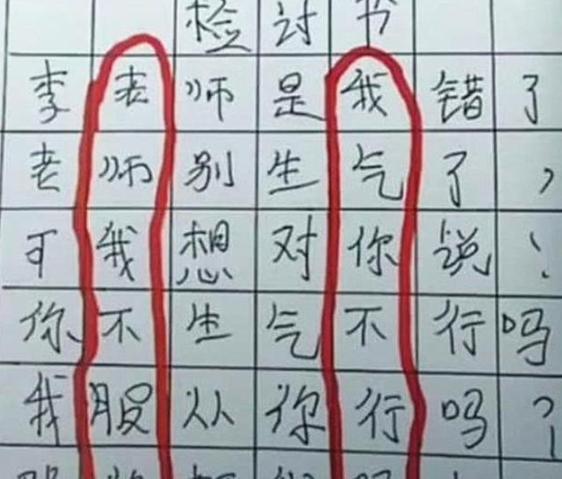 检讨书
李老师是我错了
老师别生气了，
可我想对你说：
你不生气不行吗
我服从你行吗？